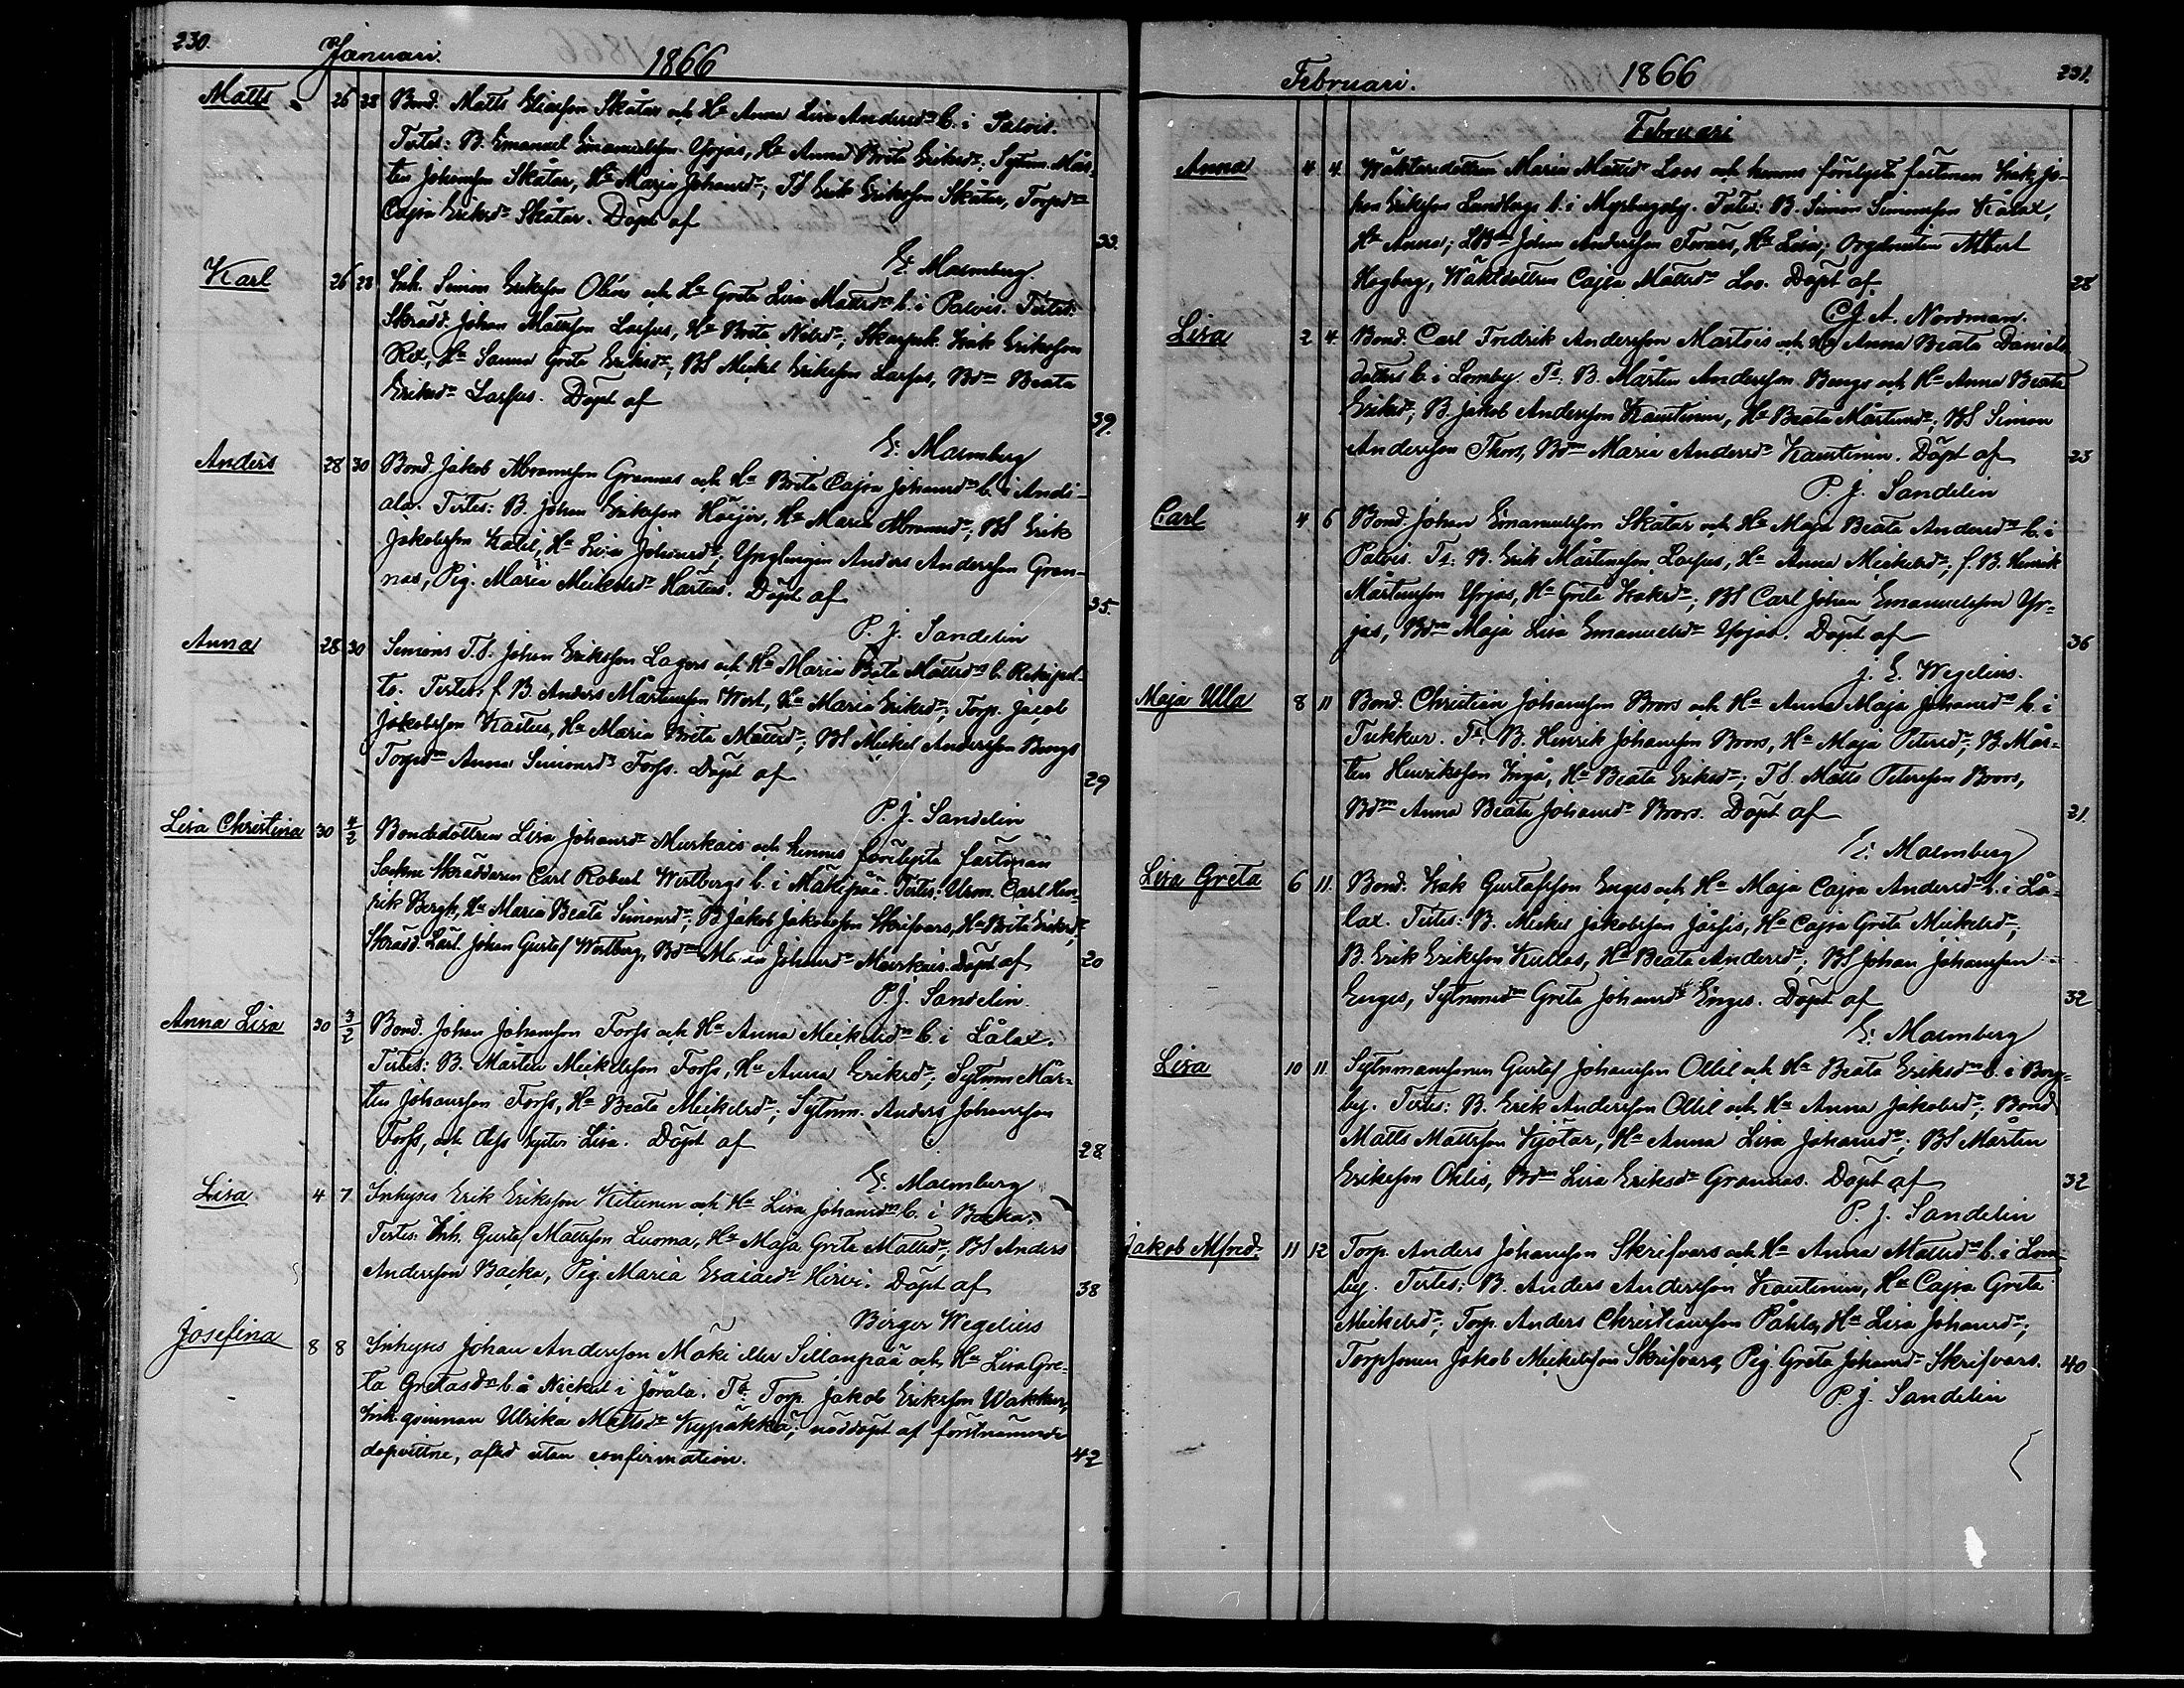 230.
Januari.
1866
Matts 26 28 Bond. Matts Eliasson Skåtar och Hu Anna Lisa Andersdrs b. i Palvis.
Testes: B. Emanuel Emanuelsson Yrjas, Hu Anna Brita Eriksdr; Sytnm. Mår-
ten Johansson Skåtar, Hu Maja Johansdr; TS Erik Eriksson Skåtar, Torpdn
Cajsa Eriksdr Skåtar. Döpt af 33.
E: Malmberg
Karl 26 28 Inh. Simon Eriksson Olérs och Hu Greta Lisa Mattsdrs b. i Palvis. Testes:
Skrädd. Johan Mattsson Lassus, Hu Brita Nilsdr; Skarpsk. Isak Eriksson
Rex, Hu Sanna Greta Eriksdr; BS Mickel Eriksson Lassus, Bdn Beata
Eriksdr Lassus. Döpt af 39.
E: Malmberg
Anders 28 30 Bond. Jakob Abramsson Grannas och Hu Brita Cajsa Johansdrs b. i Andi-
ala. Testes: B. Johan Eriksson Höijer, Hu Maria Abramsdr; BS Erik
Jakobsson Katil, Hu Lisa Johansdr; Ynglingen Anders Andersson Gran-
nas, Pig. Maria Mickelsdr Hartus. Döpt af 35.
P. J. Sandelin
Anna 28 30 Simons T.S. Johan Eriksson Lagers och Hu Maria Brita Mattsdrs b. Rekipel-
to. Testes: f. B. Anders Mårtensson West, Hu Maria Eriksdr; Torp. Jacob
Jakobsson Kastus, Hu Maria Brita Mattsdr; BS Mickel Andersson Bengs
Torpdn Anna Simonsdr Forss. Döpt af 29
P. J. Sandelin
Lisa Christina 30 4/2 Bondedottren Lisa Johansdr Murkais och hennes förelysta fästman
Sockne Skräddaren Carl Robert Westbergs b. i Mäkipää. Testes: Usm. Carl Hen-
rik Bergh, Hu Maria Beata Simonsdr; B. Jakob Jakobsson Skrifvars, Hu Brita Eriksdr;
Skrädd. Lärl. Johan Gustaf Westberg, Bdn Maria Johansdr Murkais. Döpt af 20
P. J. Sandelin.
Anna Lisa 30 3/2 Bond. Johan Johansson Forss och Hu Anna Mickelsdrs b. i Lålax.
Testes: B. Mårten Mickelsson Forss, Hu Anna Eriksdr; Sytnm Mår-
ten Johansson Forss, Hu Beata Mickelsdr; Sytnm. Anders Johansson
Forss, och dess syster Lisa. Döpt af 28
E: Malmberg
Lisa 4 7 Inhyses Erik Eriksson Kitunen och Hu Lisa Johansdrs b. i Backa.
Testes: Inh. Gustaf Mattsson Luoma, Hu Maja Greta Mattsdr; BS Anders
Andersson Backa, Pig. Maria Esaiaedr Hirvi. Döpt af 38
Birger Wegelius
Josefina 8 8 Inhyses Johan Andersson Mäki eller Sillanpää och Hu Lisa Gre-
ta Gretasdrs b. å Nickul i Jörala. Ts: Torp. Jakob Eriksson Wakkuri,
Inh. qvinnan Ulrika Mattsdr Kypäkkä; nöddöpt af förstnämnde
dopvittne, afled utan confirmation. 42
Februari.
1866
231.
Februari
Anna 4 4 Wäktaredottren Maria Mattsdr Loos och hennes förelysta fästman Inh. Jo-
han Eriksson Lundbergs b. i Myrbergsby. Testes: B. Simon Simonsson Kålax,
Hu Anna; LBn Johan Andersson Tvärs, Hu Lisa; Orgelnisten Albert
Högberg, Wäktdottren Cajsa Mattsdr Loo. Döpt af 28
C. J. A. Nordman.
Lisa 2 4 Bond. Carl Fredrik Andersson Martois och Hu Anna Beata Daniels
dotters b. i Lomby. Ts: B. Mårten Andersson Bengs och Hu Anna Beata
Eriksdr, B. Jakob Andersson Kaustinen, Hu Beata Mårtensdr; BS Simon
Andersson Thors, Bdn Maria Andersdr Kaustinen. Döpt af 23
P. J. Sandelin
Carl 4 6 Bond. Johan Emanuelsson Skåtar och Hu Maja Beata Andersdrs b. i
Palvis. Ts: B. Erik Mårtensson Lassus, Hu Anna Mickelsdr; f. B. Henrik
Mårtensson Yrjas, Hu Greta Isaksdr; BS Carl Johan Emanuelsson Yr-
jas, Bdn Maja Lisa Emanuelsdr Yrjas. Döpt af 36
J. E. Wegelius.
Maja Ulla 8 11 Bond. Christian Johansson Brors och Hu Anna Maja Johansdrs b. i
Tukkur. Ts: B. Henrik Johansson Brors, Hu Maja Petersdr; B. Mår-
ten Henriksson Ingå, Hu Beata Eriksdr; TS. Matts Petersson Brors,
Bdn Anna Beata Johansdr Brors. Döpt af 21.
E: Malmberg
Lisa Greta 6 11. Bond. Isak Gustafsson Enges och Hu Maja Cajsa Andersdrs b. i Lå-
lax. Testes: B. Mickel Jakobsson Jåfsis, Hu Cajsa Greta Mickelsdr;
B. Erik Eriksson Kullas, Hu Beata Andersdr; BS Johan Johansson
Enges, Sytnmsdn Greta Johansdr Enges. Döpt af 32
E: Malmberg
Lisa 10 11 Sytnmanssonen Gustaf Johansson Ollil och Hu Beata Eriksdrs b. i Berg-
by. Testes: B. Erik Andersson Ollil och Hu Anna Jakobsdr; Bond
Matts Mattsson Kjötar, Hu Anna Lisa Johansdr; BS Mårten
Eriksson Ohlis, Bdn Lisa Eriksdr Grannas. Döpt af 32
P. J. Sandelin
Jakob Alfred 11 12 Torp. Anders Johansson Skrifvars och Hu Anna Mattsdrs b. i Lom-
by. Testes: B. Anders Andersson Kaustinen, Hu Cajsa Greta
Michelsdr; Torp. Anders Christiansson Påhls, Hu Lisa Johansdr;
Torpsonen Jakob Mickelsson Skrifvars, Pig. Greta Johansdr Skrifvars. 40
P. J. Sandelin